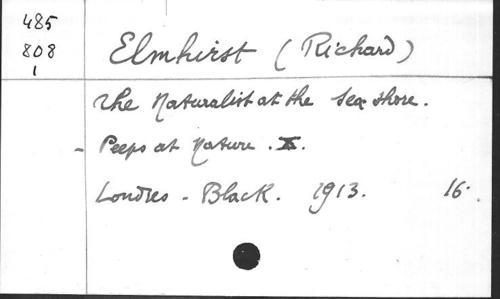 485
808
1
Elmhirst (Richard)
The Naturalist at the Sea Shore.
- Peeps at Nature. X.
Londres - Black. 1913. 16·